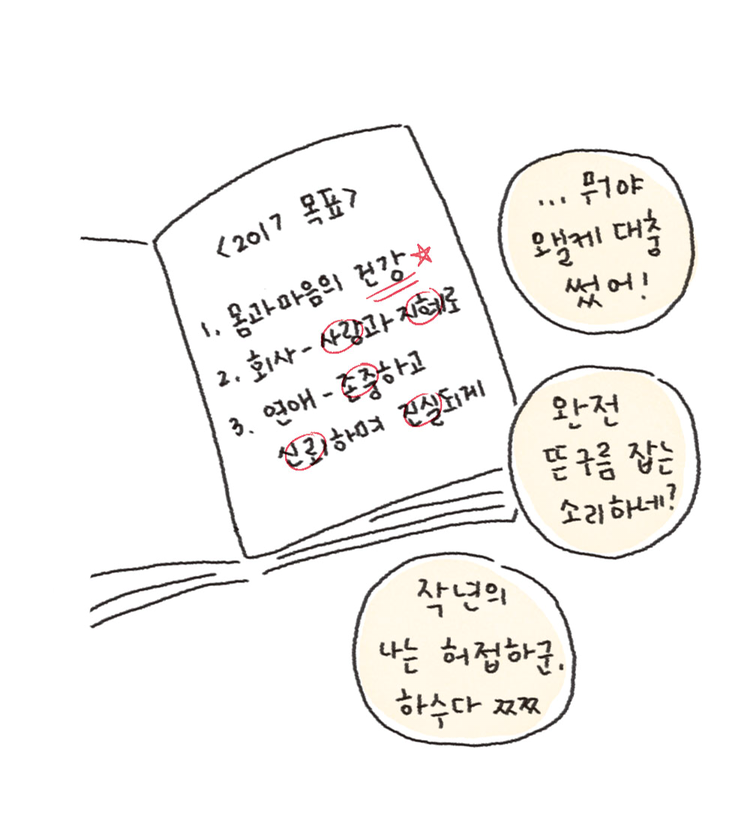 <2017 목표>
1. 몸과 마음의 건강☆
2. 회사 - 사랑과 지혜로
3. 연애 - 존중하고
신뢰하며 진실되게
... 뭐야
왤케 대충
썼어!
완전
뜬구름 잡는
소리하네?
작년의
나는 허접하군.
하수다 ㅉㅉ